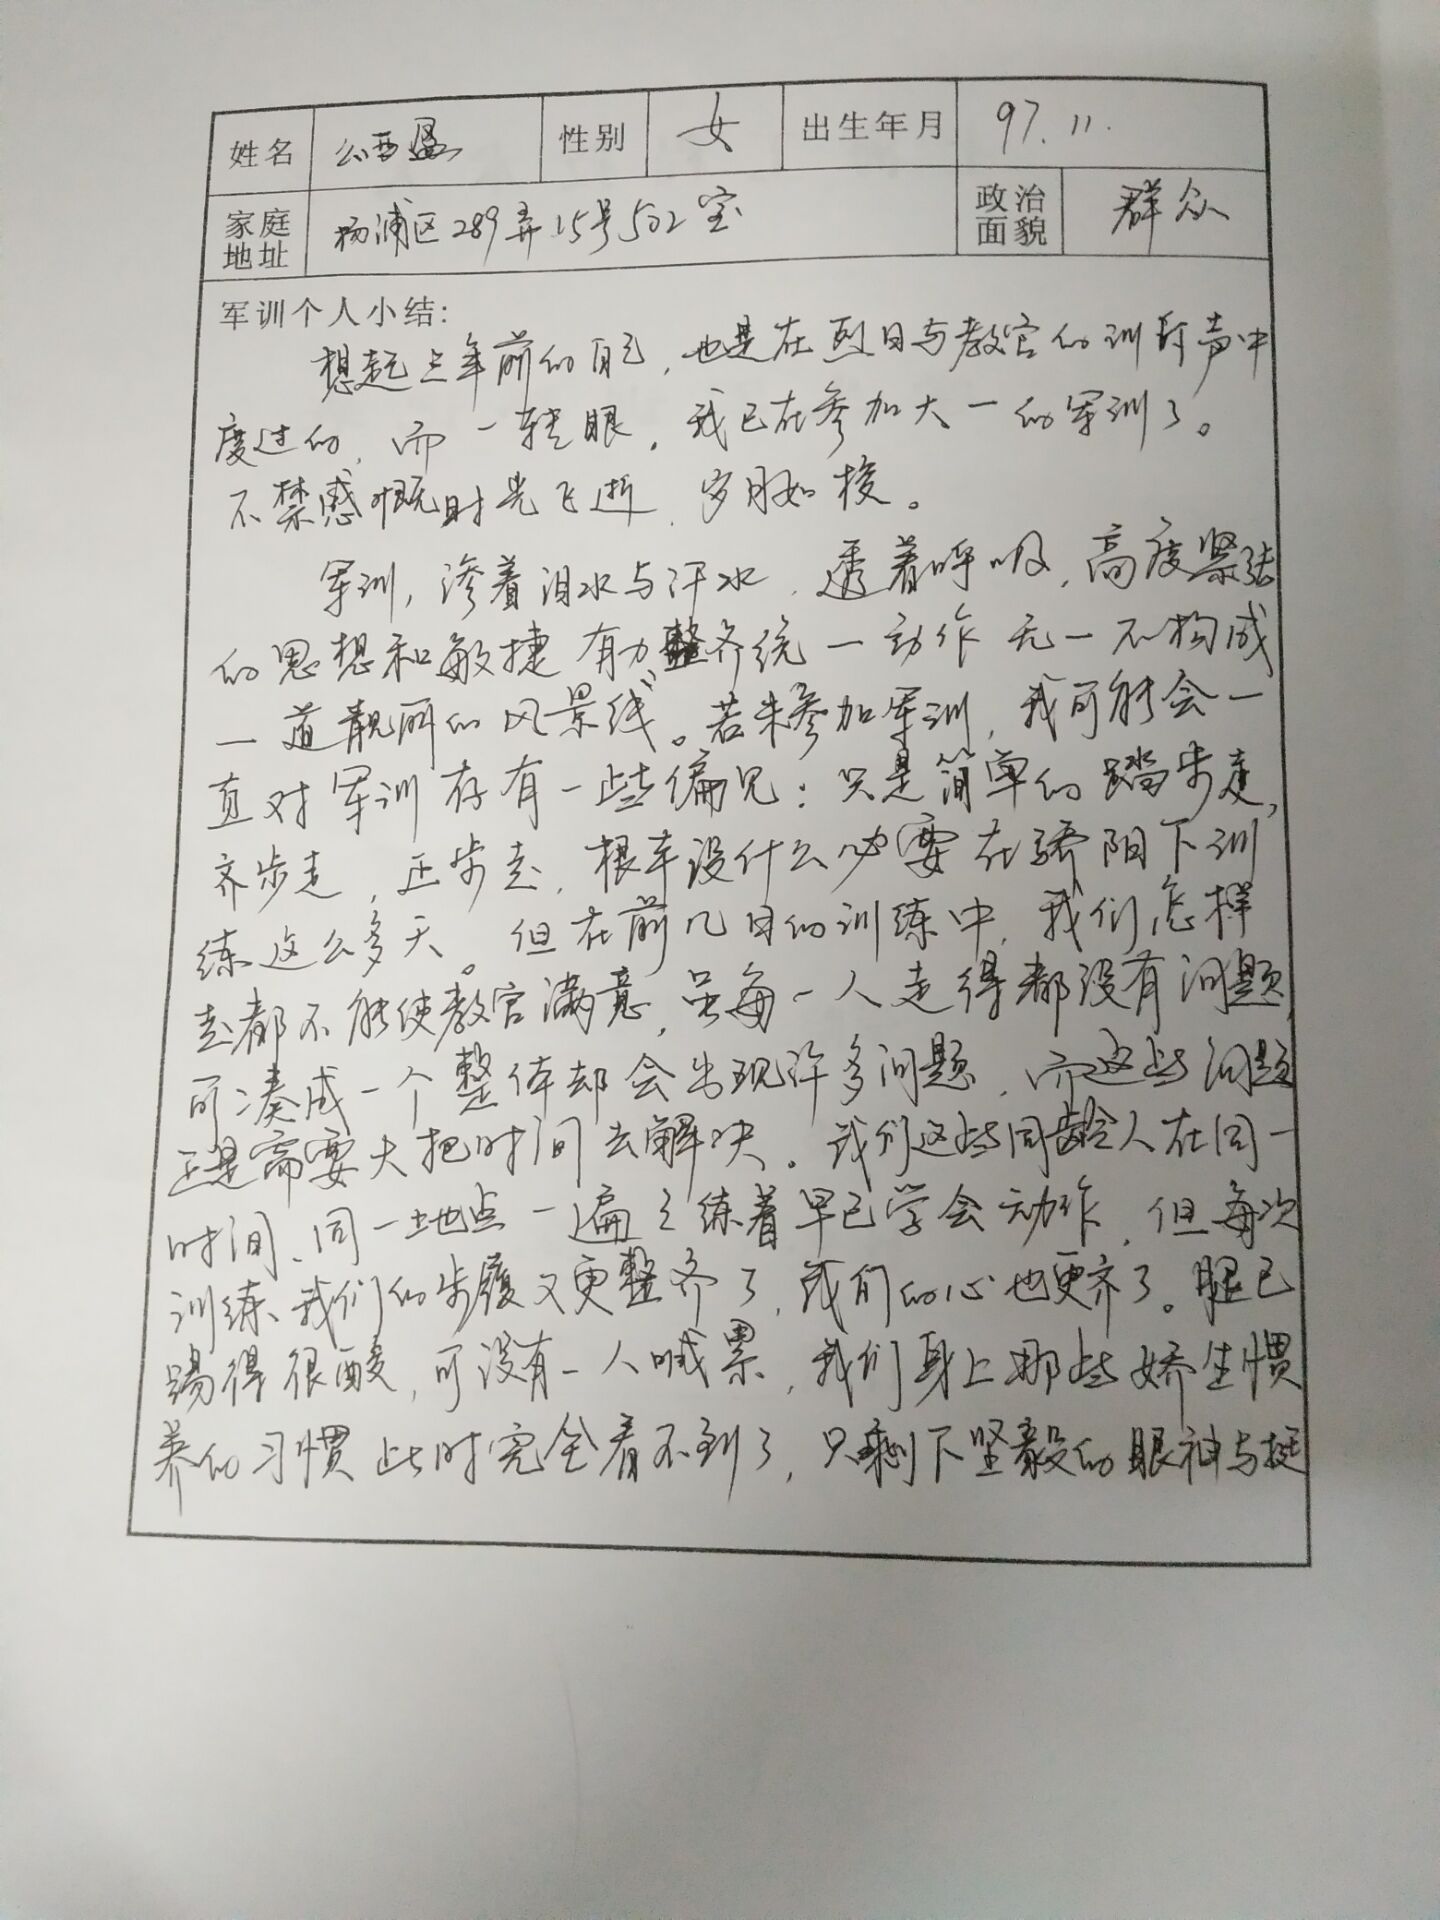 姓名 公西盈 性别 女 出生年月 97.11.
家庭地址 杨浦区289弄15号502室 政治面貌 群众
军训个人小结:
想起三年前的自己，也是在烈日与教官的训斥声中
度过的，而一转眼，我已在参加大一的军训了。
不禁感慨时光飞逝，岁月如梭。
军训，渗着泪水与汗水，透着呼吸，高度紧张
的思想和敏捷有力整齐统一动作无一不构成
一道靓丽的风景线。若未参加军训，我可能会一
直对军训存有一些偏见：只是简单的踏步走，
齐步走，正步走，根本没什么必要在骄阳下训
练这么多天。但在前几日的训练中，我们怎样
走都不能使教官满意，虽每一人走得都没有问题，
可凑成一个整体却会出现许多问题，而这些问题
正是需要大把时间去解决。我们这些同龄人在同一
时间、同一地点一遍之练着早已学会动作，但每次
训练、我们的步履又更整齐了，我们的心也更齐了。腿已
踢得很酸，可没有一人喊累，我们身上那些娇生惯
养的习惯此时完全看不到了，只剩下坚毅的眼神与挺